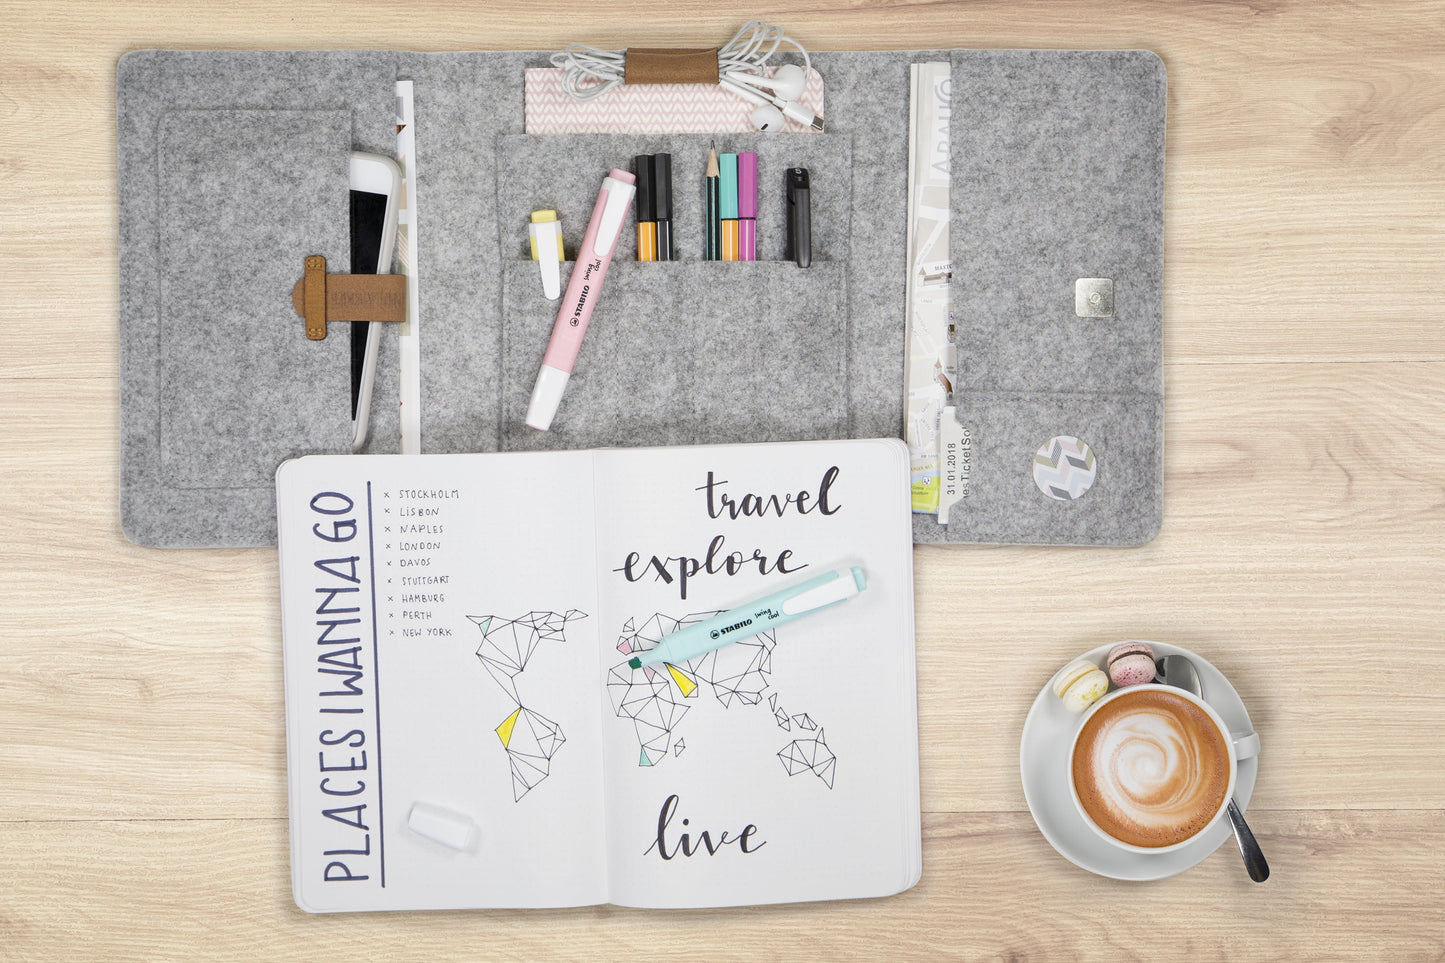 STABILO swing cool
31.01.2018
PLACES I WANNA GO
× STOCKHOLM
× LISBON
× NAPLES
× LONDON
× DAVOS
× STUTTGART
× HAMBURG
× PERTH
× NEW YORK
travel
explore
STABILO swing cool
live